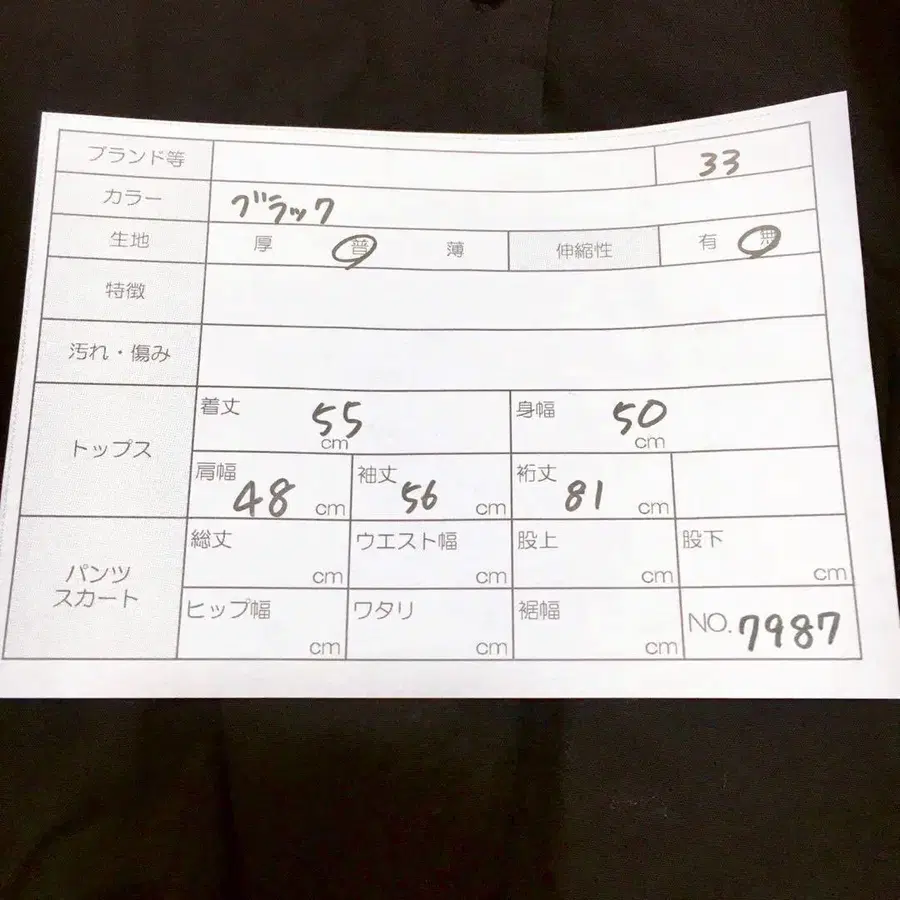 ブランド等 33
カラー ブラック
生地 厚 普 薄 伸縮性 有 無
特徴
汚れ・傷み
トップス
着丈 55 cm 身幅 50 cm
肩幅 48 cm 袖丈 56 cm 裄丈 81 cm
パンツ
スカート
総丈 cm ウエスト幅 cm 股上 cm 股下 cm
ヒップ幅 cm ワタリ cm 裾幅 cm NO. 7987